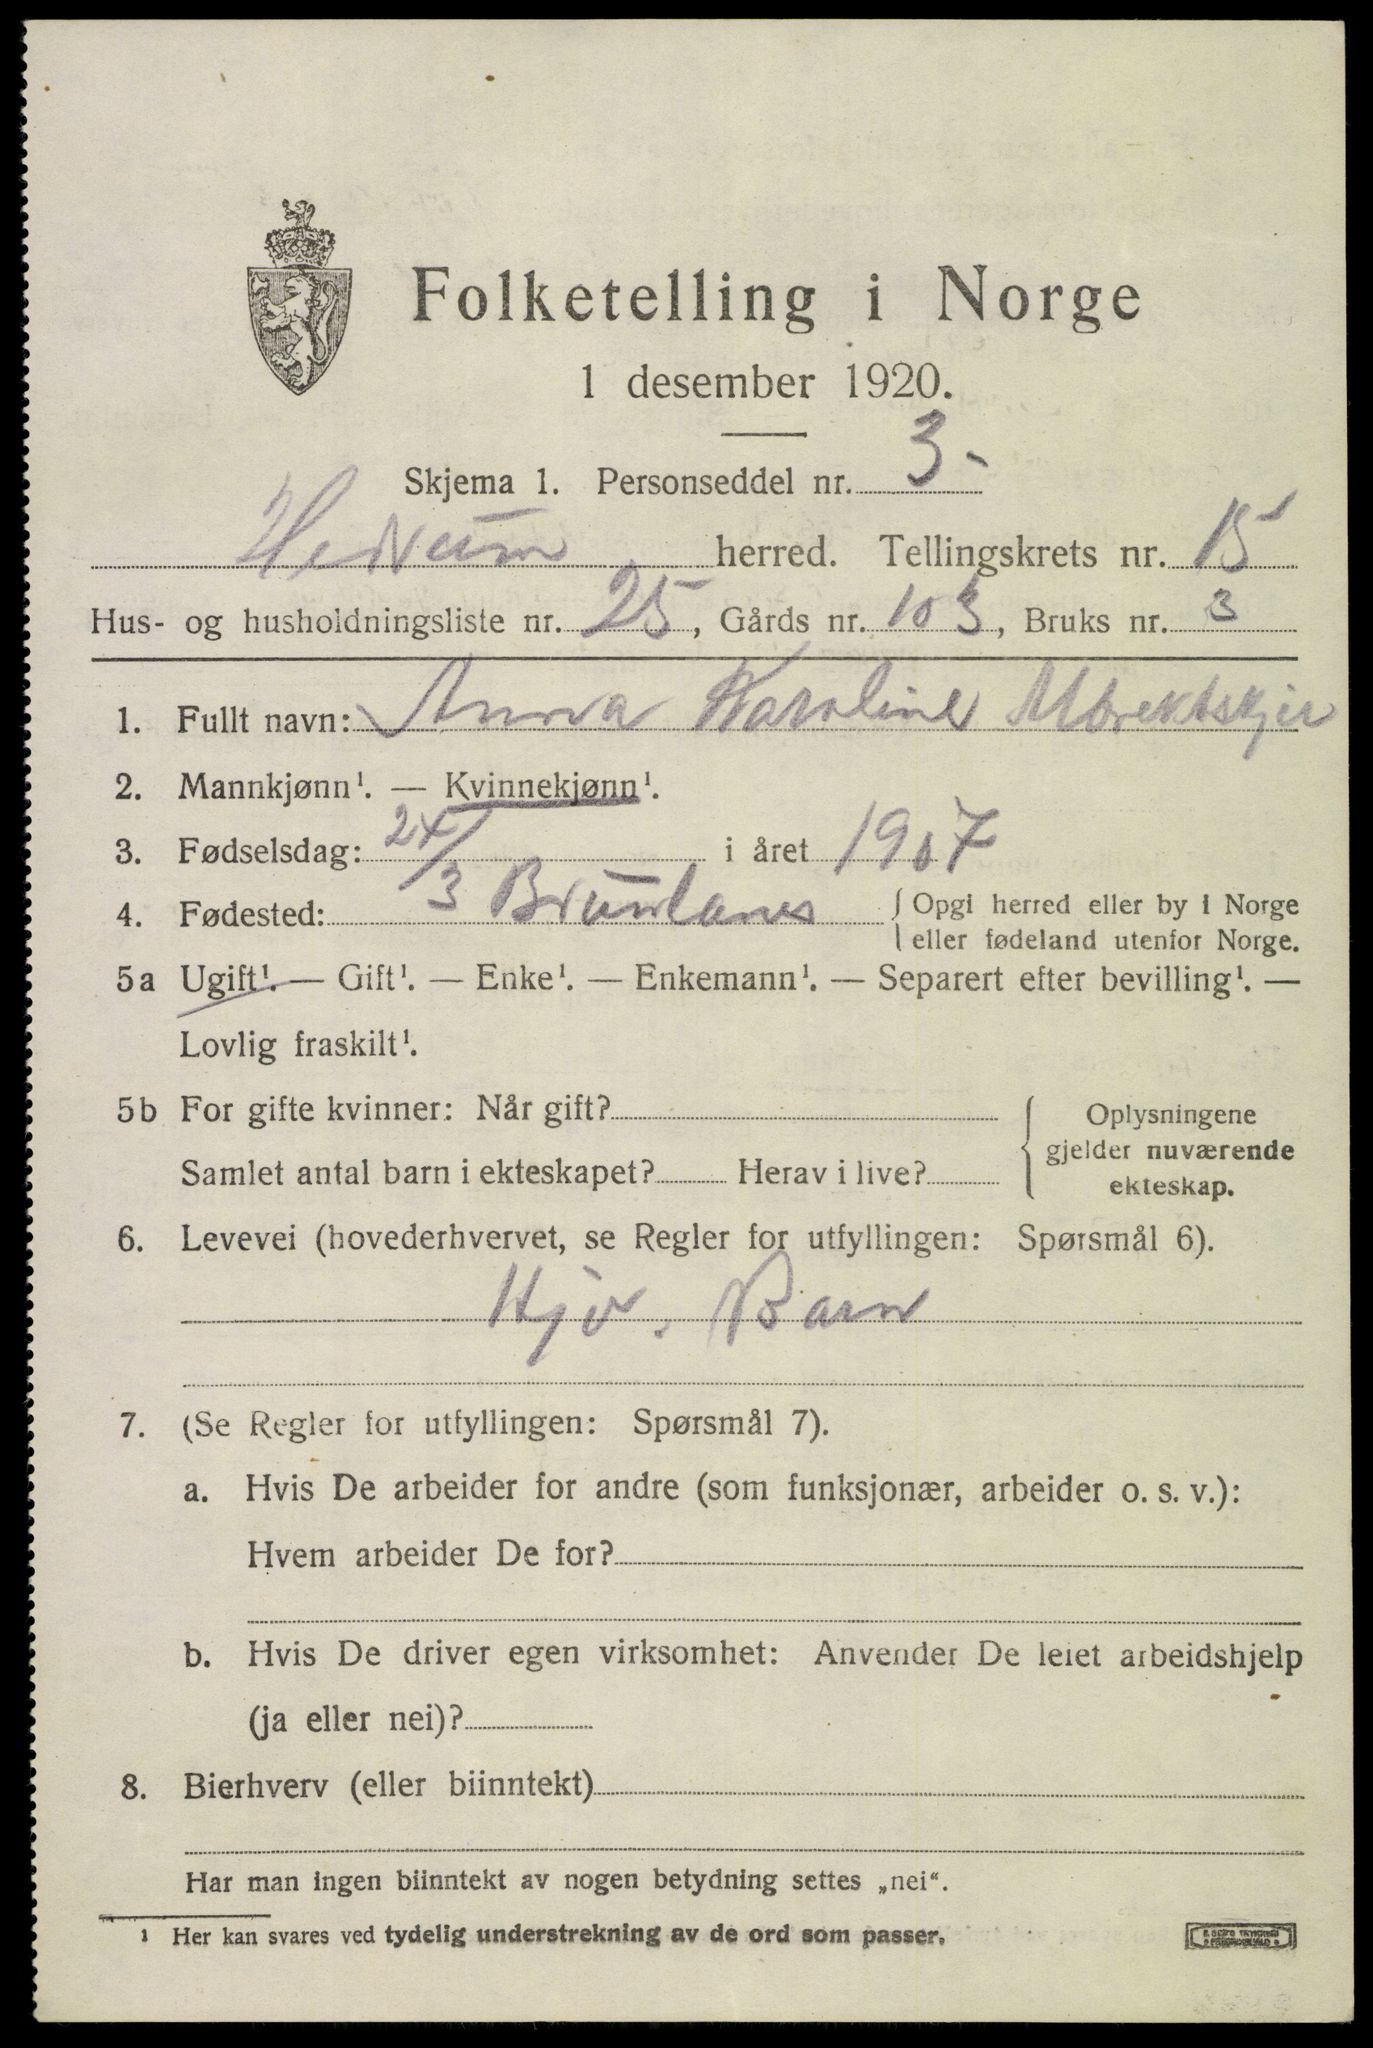 Folketelling i Norge
1 desember 1920.
Skjema 1. Personseddel nr. 3
Hedrum herred. Tellingskrets nr. 15
Hus- og husholdningsliste nr. 25, Gårds nr. 103, Bruks nr. 3
1. Fullt navn: Anna Karoline
2. Mannkjønn¹. — Kvinnekjønn¹.
3. Fødselsdag: 24/3 i året 1907
4. Fødested: Brunlanes { Opgi herred eller by i Norge
eller fødeland utenfor Norge.
5a Ugift¹. — Gift¹. — Enke¹. — Enkemann¹. — Separert efter bevilling¹. —
Lovlig fraskilt¹.
5b For gifte kvinner: Når gift? { Oplysningene
gjelder nuværende
Samlet antal barn i ekteskapet? Herav i live?
ekteskap.
6. Levevei (hovederhvervet, se Regler for utfyllingen: Spørsmål 6).
Hjv. Barn
7. (Se Regler for utfyllingen: Spørsmål 7).
a. Hvis De arbeider for andre (som funksjonær, arbeider o. s. v.):
Hvem arbeider De for?
b. Hvis De driver egen virksomhet: Anvender De leiet arbeidshjelp
(ja eller nei)?
8. Bierhverv (eller biinntekt)
Har man ingen biinntekt av nogen betydning settes „nei“.
¹ Her kan svares ved tydelig understrekning av de ord som passer.